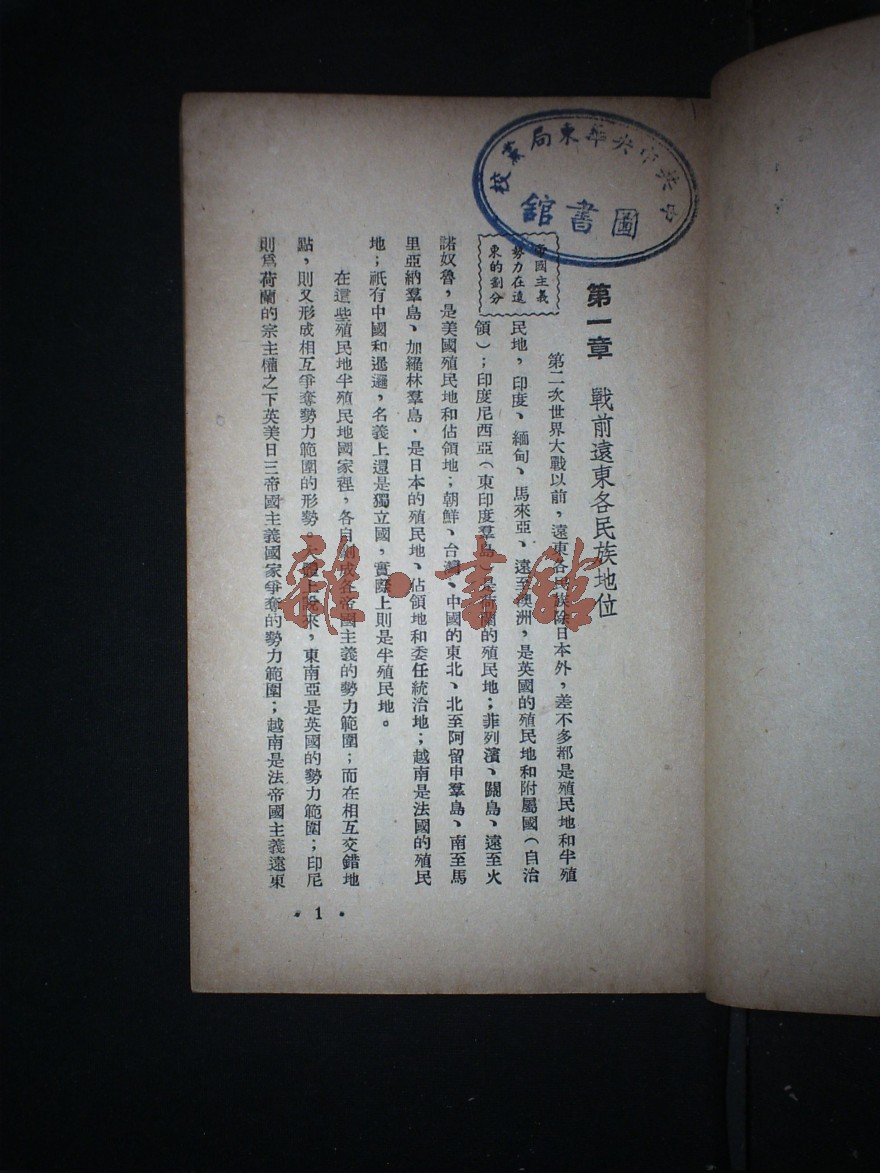 中共中央華東局黨校
圖書館
第一章　戰前遠東各民族地位
帝國主義
勢力在遠
東的劃分
第二次世界大戰以前，遠東各民族除日本外，差不多都是殖民地和半殖
民地，印度、緬甸、馬來亞、遠至澳洲，是英國的殖民地和附屬國（自治
領）；印度尼西亞（東印度羣島）是荷蘭的殖民地；菲列濱、關島、遠至火
諾奴魯，是美國殖民地和佔領地；朝鮮、台灣、中國的東北、北至阿留申羣島、南至馬
里亞納羣島、加羅林羣島．是日本的殖民地、佔領地和委任統治地；越南是法國的殖民
地；祇有中國和暹邏，名義上還是獨立國，實際上則是半殖民地。
在這些殖民地半殖民地國家裡，各自劃成各帝國主義的勢力範圍；而在相互交錯地
點，則又形成相互爭奪勢力範圍的形勢。大體上說來，東南亞是英國的勢力範圍；印尼
則爲荷蘭的宗主權之下英美日三帝國主義國家爭奪的勢力範圍；越南是法帝國主義遠東
• 1 •
雜·書館